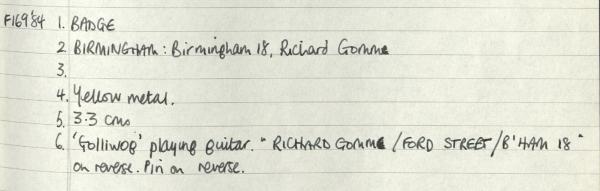 F169'84 1. BADGE
2 BIRMINGHAM: Birmingham 18, Richard Gomme
3.
4. Yellow metal.
5. 3.3 cms
6. 'Golliwog' playing guitar. "RICHARD GOMME / FORD STREET / B'HAM 18"
on reverse. Pin on reverse.